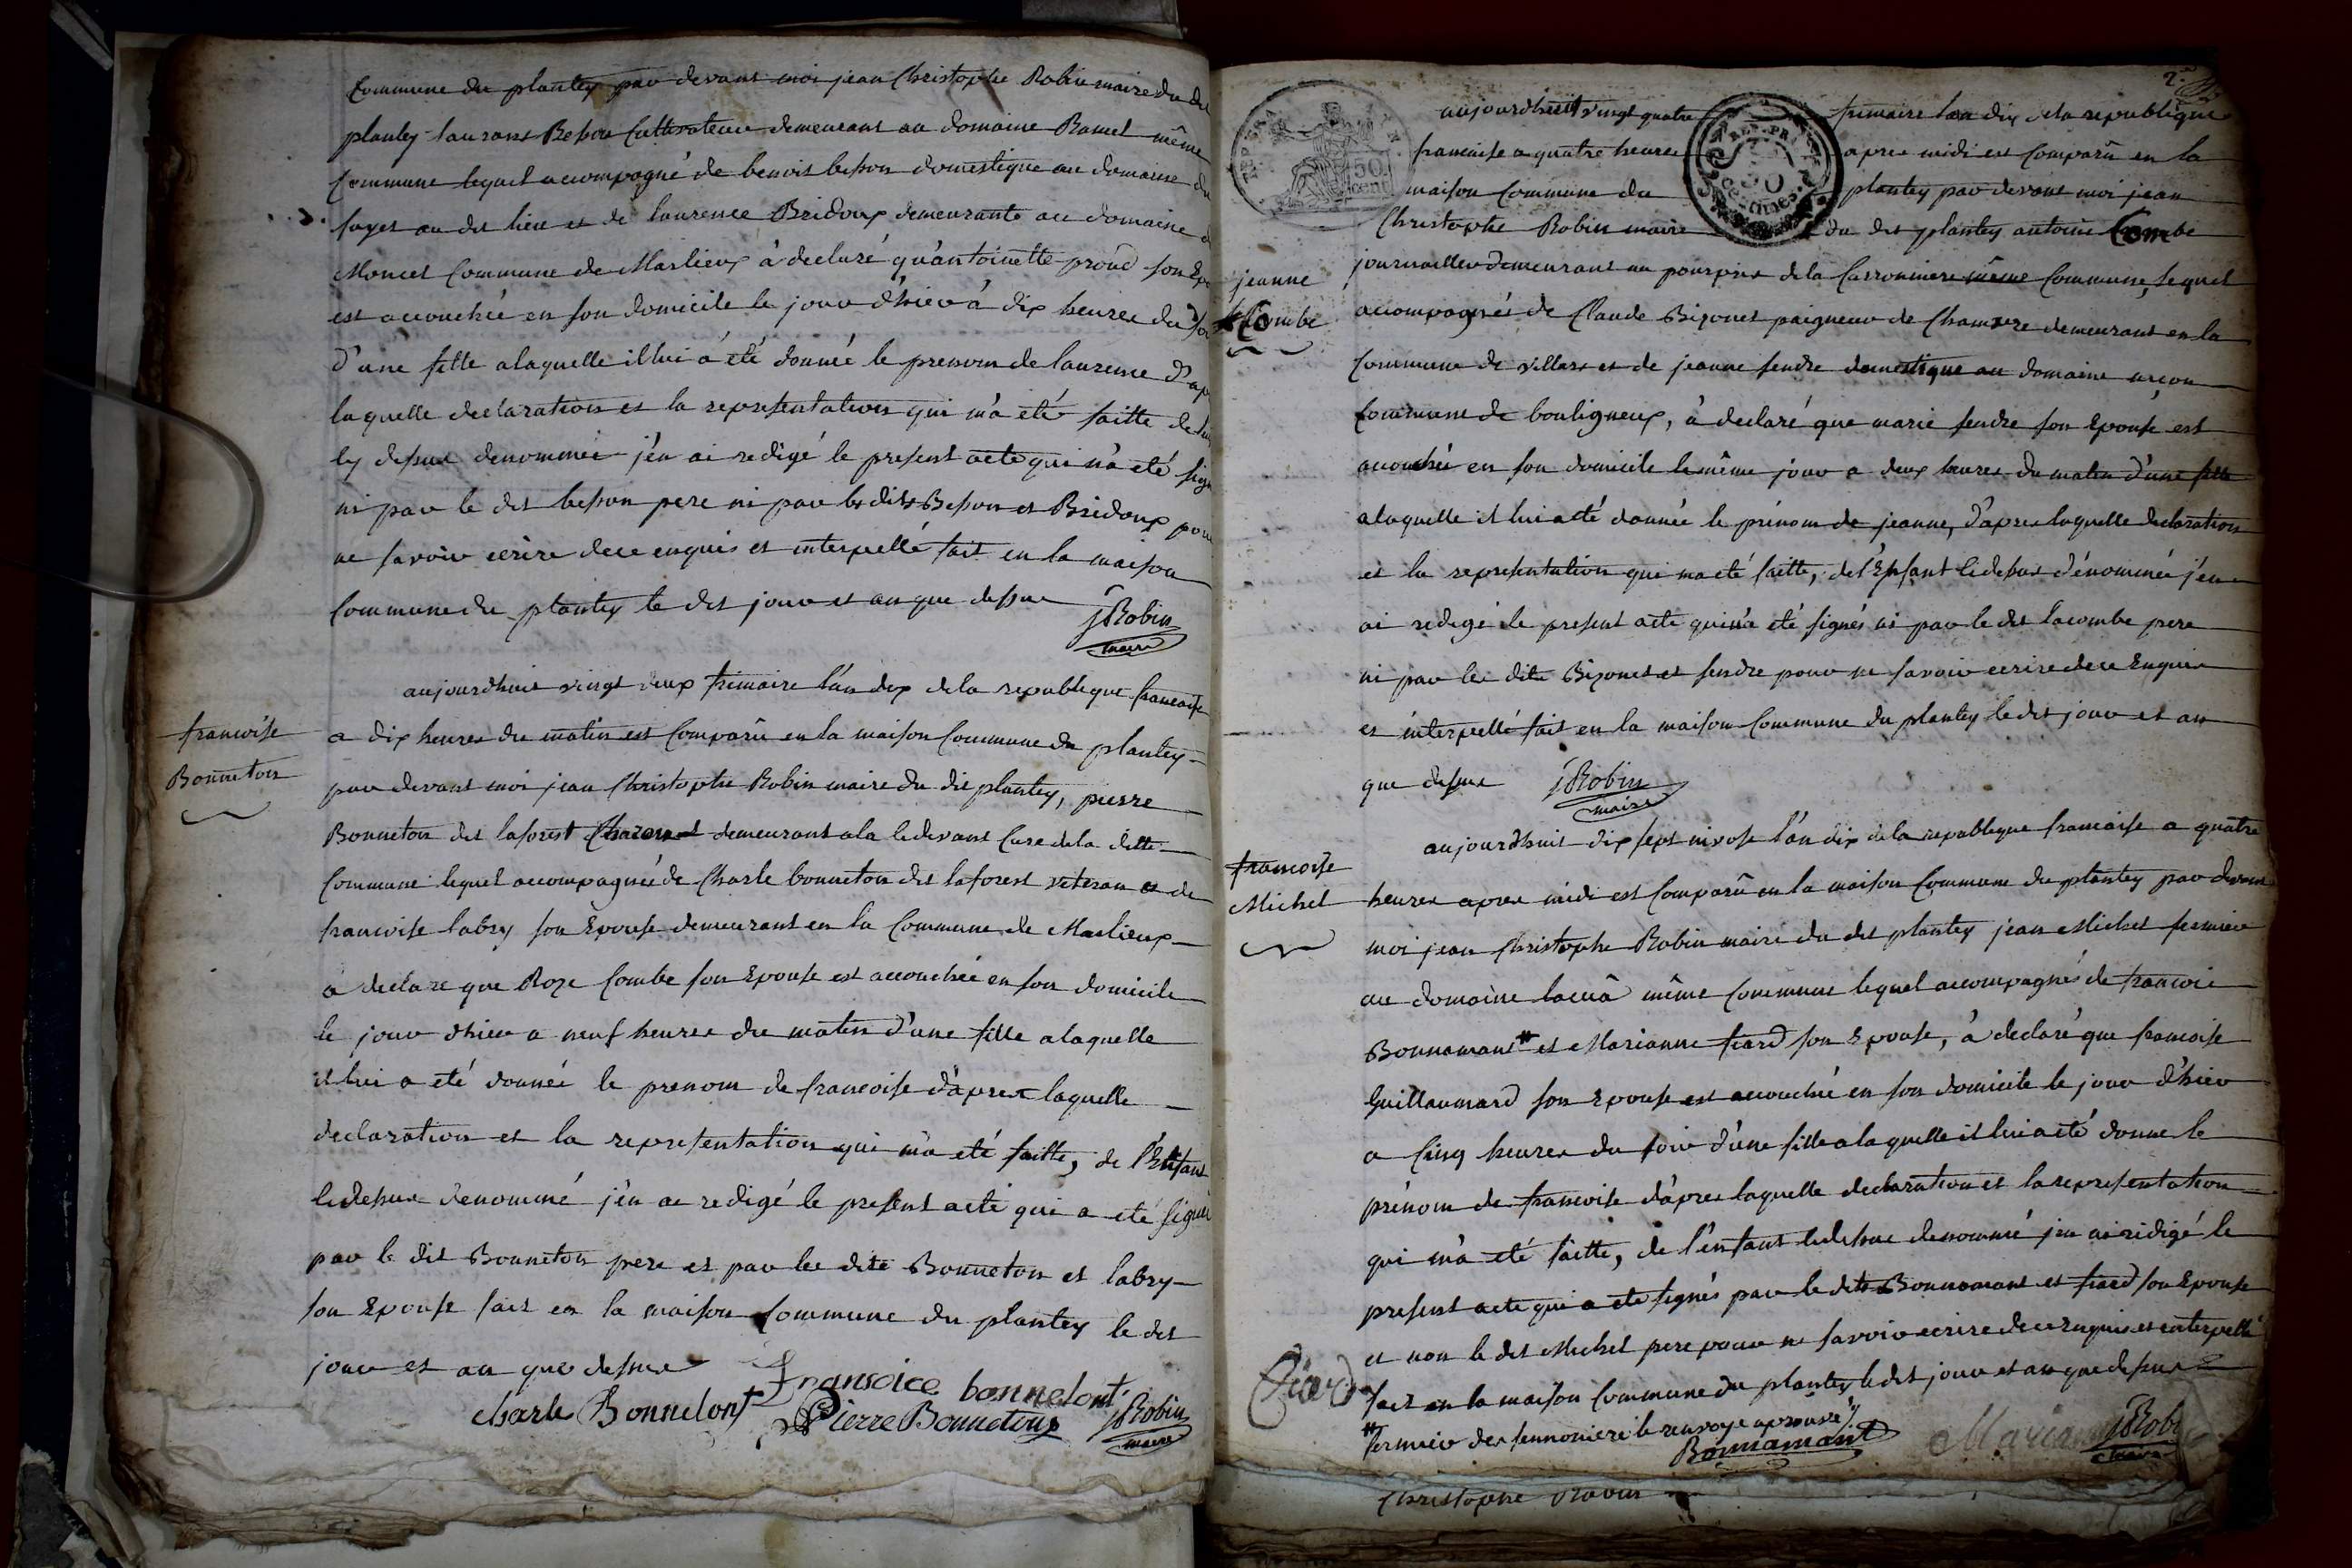 Commune du plantey par devant moi jean Christophe Robin maire du dit
plantey laurans Besson Cultivateur demeurant au domaine Ramel même
Commune lequel accompagné de benoit besson domestique au domaine du
au dit lieu et de laurence Bridoux demeurante au domaine
Moncet Commune de Marlieux à declaré qu'antoinette proud son Ep
est accouchée en son domicile le jour d'hier à dix heures du soi
d'une fille a laquelle il lui a été donné le prenom de laurence d'apr
laquelle declaration et la representation qui m'a été faitte de
cy dessus denommée j'en ai redigé le present acte qui n'a été sign
ni par le dit besson pere ni par les dits Besson et Bridoux pour
ne savoir ecrire de ce enquis et interpellé fait en la maison
Commune du plantey le dit jour et an que dessus
JRobin
maire
francoise
Bonneton
aujourdhuit vingt deux frimaire l'an dix de la republique francoise
a dix heures du matin est Comparû en la maison Commune du plantey
par devant moi jean Christophe Robin maire du dit plantey, pierre
Bonneton dit laforest demeurant a la cidevant Cure de la ditte
Commune lequel accompagnée de Charle bonneton dit laforest veteran et de
francoise labry son Epouse demeurant en la Commune de Marlieux
a declare que Roze Combe son Epouse est accouchée en son domicile
le jour d'hier a neuf heures du matin d'une fille a laquelle
il lui a été donnée le prenom de francoise d'apres laquelle
declaration et la representation qui m'a été faitte, de l'Enfant
cidessus denommé j'en ai redigé le present acte qui a été signé
par le dit Bonneton pere et par les dits Bonneton et labry
son Epouse fait en la maison Commune du plantey le dit
jour et an que dessus
fransoice bonnelont
charle Bonnelont
Pierre Bonneton
JRobin
maire
2e
REP. FRA.
50
cent
aujourdhuit vingt quatre frimaire lan dix de la republique
francaise a quatre heures apres midi est Comparû en la
maison Commune du plantey par devant moi jean
Christophe Robin maire du dit plantey antoine Combe
jeanne
Combe
journallier demeurant au pourpris de la Carronniere même Commune, lequel
accompagnés de Claude Bizonet paigneur de Chanvre demeurant en la
Commune de villars et de jeanne fendre domestique au domaine
Commune de bouligneux, à declaré que marie fendre son Epouse est
accouchée en son domicile le même jour a deux heures du matin d'une fille
a laquelle il lui a été donnée le prénom de jeanne, d'apres laquelle declaration
et la representation qui ma été faitte, de l'Enfant cidessus dénommée j'en
ai redigé le present acte qui n'a été signés ni par le dit lacombe pere
ni par les dits Bizonet et fendre pour ne savoir ecrire de ce Enquis
et interpellé fait en la maison Commune du plantey le dit jour et an
que dessus
JRobin
maire
francoise
Michel
aujourdhuit dix sept nivose l'an dix de la republique francaise a quatre
heures apres midi est Comparû en la maison Commune du plantey par devant
moi jean Christophe Robin maire du dit plantey jean Michel fermier
au domaine même Commune lequel accompagnés de francois
Bonnamant # et Marianne fiard son Epouse, à declaré que francoise
Guillaumard son Epouse est accouchée en son domicile le jour d'hier
a Cinq heures du soir d'une fille a laquelle il lui a été donne le
prénom de francoise d'apres laquelle declaration et la representation
qui m'a été faitte, de l'enfant cidessus denommé j'en ai redigé le
present acte qui a été signés par le dits Bonnamant et fiard son Epouse
et non le dit Michel pere pour ne savoir ecrire de ce enquis et interpellé
fait en la maison Commune du plantey le dit jour et an que dessus
fiard
# fermier des le renvoye aprouvé
Bonnamant
JRobi
maire
Christophe Robin